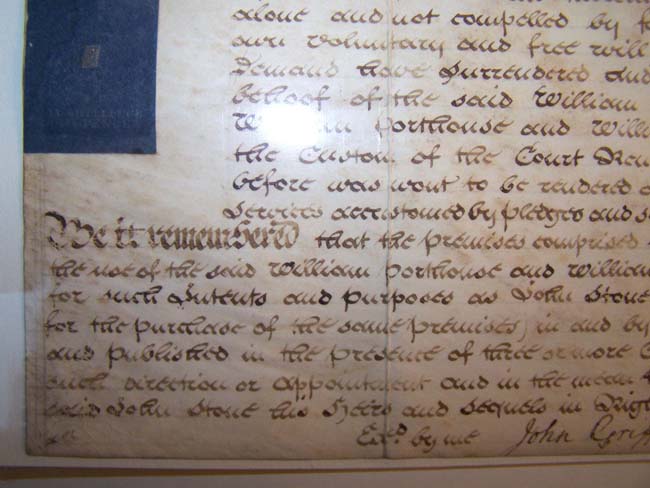 alone and not compelled by
own voluntary and free will
Demand have Surrendered and
behoof of the said William
William Porthouse and Willi
the Custom of the Court Ren
before was wont to be rendered
Services accustomed by pledges and s
Be it remembered that the premises comprised
the use of the said William Porthouse and William
for such Intents and purposes as John Stone
for the purchase of the same premises) in and by
and published in the presence of three or more
such direction or appointment and in the mean
said John Stone his Heirs and Sequels in Righ
Exd by me John Griff